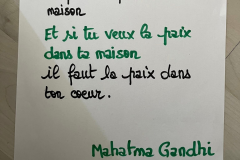 maison
Et si tu veux la paix
dans ta maison
il faut la paix dans
ton coeur.
Mahatma Gandhi